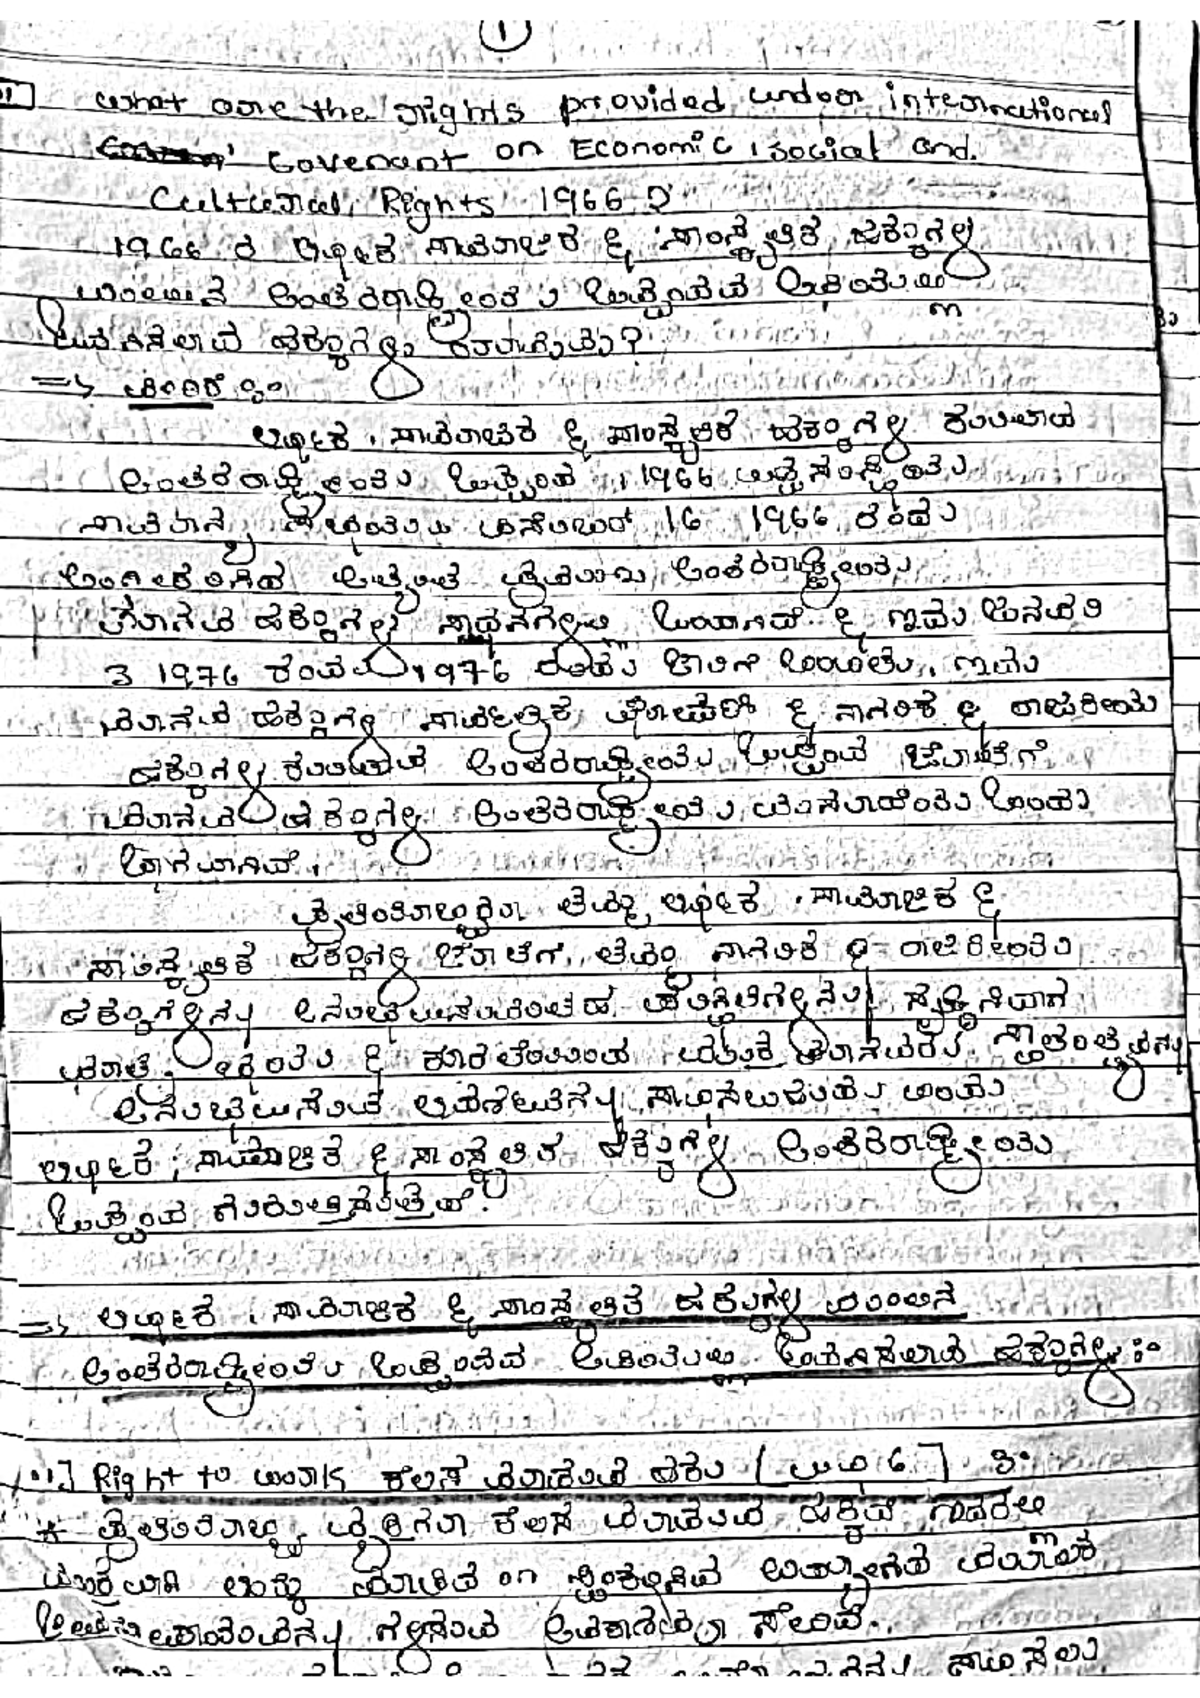 1
01] What are the rights provided under international
Covenant on Economic, Social and.
Cultural Rights 1966 ?
1966 ರ ಆರ್ಥಿಕ ಸಾಮಾಜಿಕ & ಸಾಂಸ್ಕೃತಿಕ ಹಕ್ಕುಗಳ
ಮೇಲಿನ ಅಂತರರಾಷ್ಟ್ರೀಯ ಒಪ್ಪಂದದ ಅಡಿಯಲ್ಲಿ
ಒದಗಿಸಲಾದ ಹಕ್ಕುಗಳು ಯಾವುವು?
=> ಪೀಠಿಕೆ :-
ಆರ್ಥಿಕ, ಸಾಮಾಜಿಕ & ಸಾಂಸ್ಕೃತಿಕ ಹಕ್ಕುಗಳ ಕುರಿತಾದ
ಅಂತರರಾಷ್ಟ್ರೀಯ ಒಪ್ಪಂದ, 1966 ವಿಶ್ವಸಂಸ್ಥೆಯ
ಸಾಮಾನ್ಯ ಸಭೆಯು ಡಿಸೆಂಬರ್ 16 1966 ರಂದು
ಅಂಗೀಕರಿಸಿದ ಅತ್ಯಂತ ಪ್ರಮುಖ ಅಂತರರಾಷ್ಟ್ರೀಯ
ಮಾನವ ಹಕ್ಕುಗಳ ಸಾಧನಗಳಲ್ಲಿ ಒಂದಾಗಿದೆ & ಇದು ಜನವರಿ
3 1976 ರಂದು 1976 ರಂದು ಜಾರಿಗೆ ಬಂದಿತು. ಇದು
ಮಾನವ ಹಕ್ಕುಗಳ ಸಾರ್ವತ್ರಿಕ ಘೋಷಣೆ & ನಾಗರಿಕ & ರಾಜಕೀಯ
ಹಕ್ಕುಗಳ ಕುರಿತಾದ ಅಂತರರಾಷ್ಟ್ರೀಯ ಒಪ್ಪಂದ ಜೊತೆಗೆ
ಮಾನವ ಹಕ್ಕುಗಳ ಅಂತರರಾಷ್ಟ್ರೀಯ ಮಸೂದೆಯ ಒಂದು
ಭಾಗವಾಗಿದೆ.
ಪ್ರತಿಯೊಬ್ಬರೂ ತಮ್ಮ ಆರ್ಥಿಕ, ಸಾಮಾಜಿಕ &
ಸಾಂಸ್ಕೃತಿಕ ಹಕ್ಕುಗಳ ಜೊತೆಗೆ ತಮ್ಮ ನಾಗರಿಕ & ರಾಜಕೀಯ
ಹಕ್ಕುಗಳನ್ನು ಅನುಭವಿಸಬಹುದಾದ ಪರಿಸ್ಥಿತಿಗಳನ್ನು ಸೃಷ್ಟಿಸಿದಾಗ
ಮಾತ್ರ, ಭಯ & ಕೊರತೆಯಿಂದ ಮುಕ್ತ ಮಾನವರು ಸ್ವಾತಂತ್ರ್ಯವನ್ನು
ಅನುಭವಿಸುವ ಆದರ್ಶವನ್ನು ಸಾಧಿಸಬಹುದು ಎಂದು
ಆರ್ಥಿಕ, ಸಾಮಾಜಿಕ & ಸಾಂಸ್ಕೃತಿಕ ಹಕ್ಕುಗಳ ಅಂತರರಾಷ್ಟ್ರೀಯ
ಒಪ್ಪಂದ ಗುರುತಿಸುತ್ತದೆ.
=> ಆರ್ಥಿಕ, ಸಾಮಾಜಿಕ & ಸಾಂಸ್ಕೃತಿಕ ಹಕ್ಕುಗಳ ಮೇಲಿನ
ಅಂತರರಾಷ್ಟ್ರೀಯ ಒಪ್ಪಂದದ ಅಡಿಯಲ್ಲಿ ಒದಗಿಸಲಾದ ಹಕ್ಕುಗಳು :-
01] Right to work ಕೆಲಸ ಮಾಡುವ ಹಕ್ಕು [ವಿಧಿ 6] :-
* ಪ್ರತಿಯೊಬ್ಬ ವ್ಯಕ್ತಿಗೂ ಕೆಲಸ ಮಾಡುವ ಹಕ್ಕಿದೆ
ಮುಕ್ತವಾಗಿ ಆಯ್ಕೆ ಮಾಡಿದ or ಸ್ವೀಕರಿಸಿದ ಉದ್ಯೋಗದ ಮೂಲಕ
ಜೀವನೋಪಾಯವನ್ನು ಗಳಿಸುವ ಅವಕಾಶವೂ ಸೇರಿದೆ.
ಸಾಧಿಸಲು